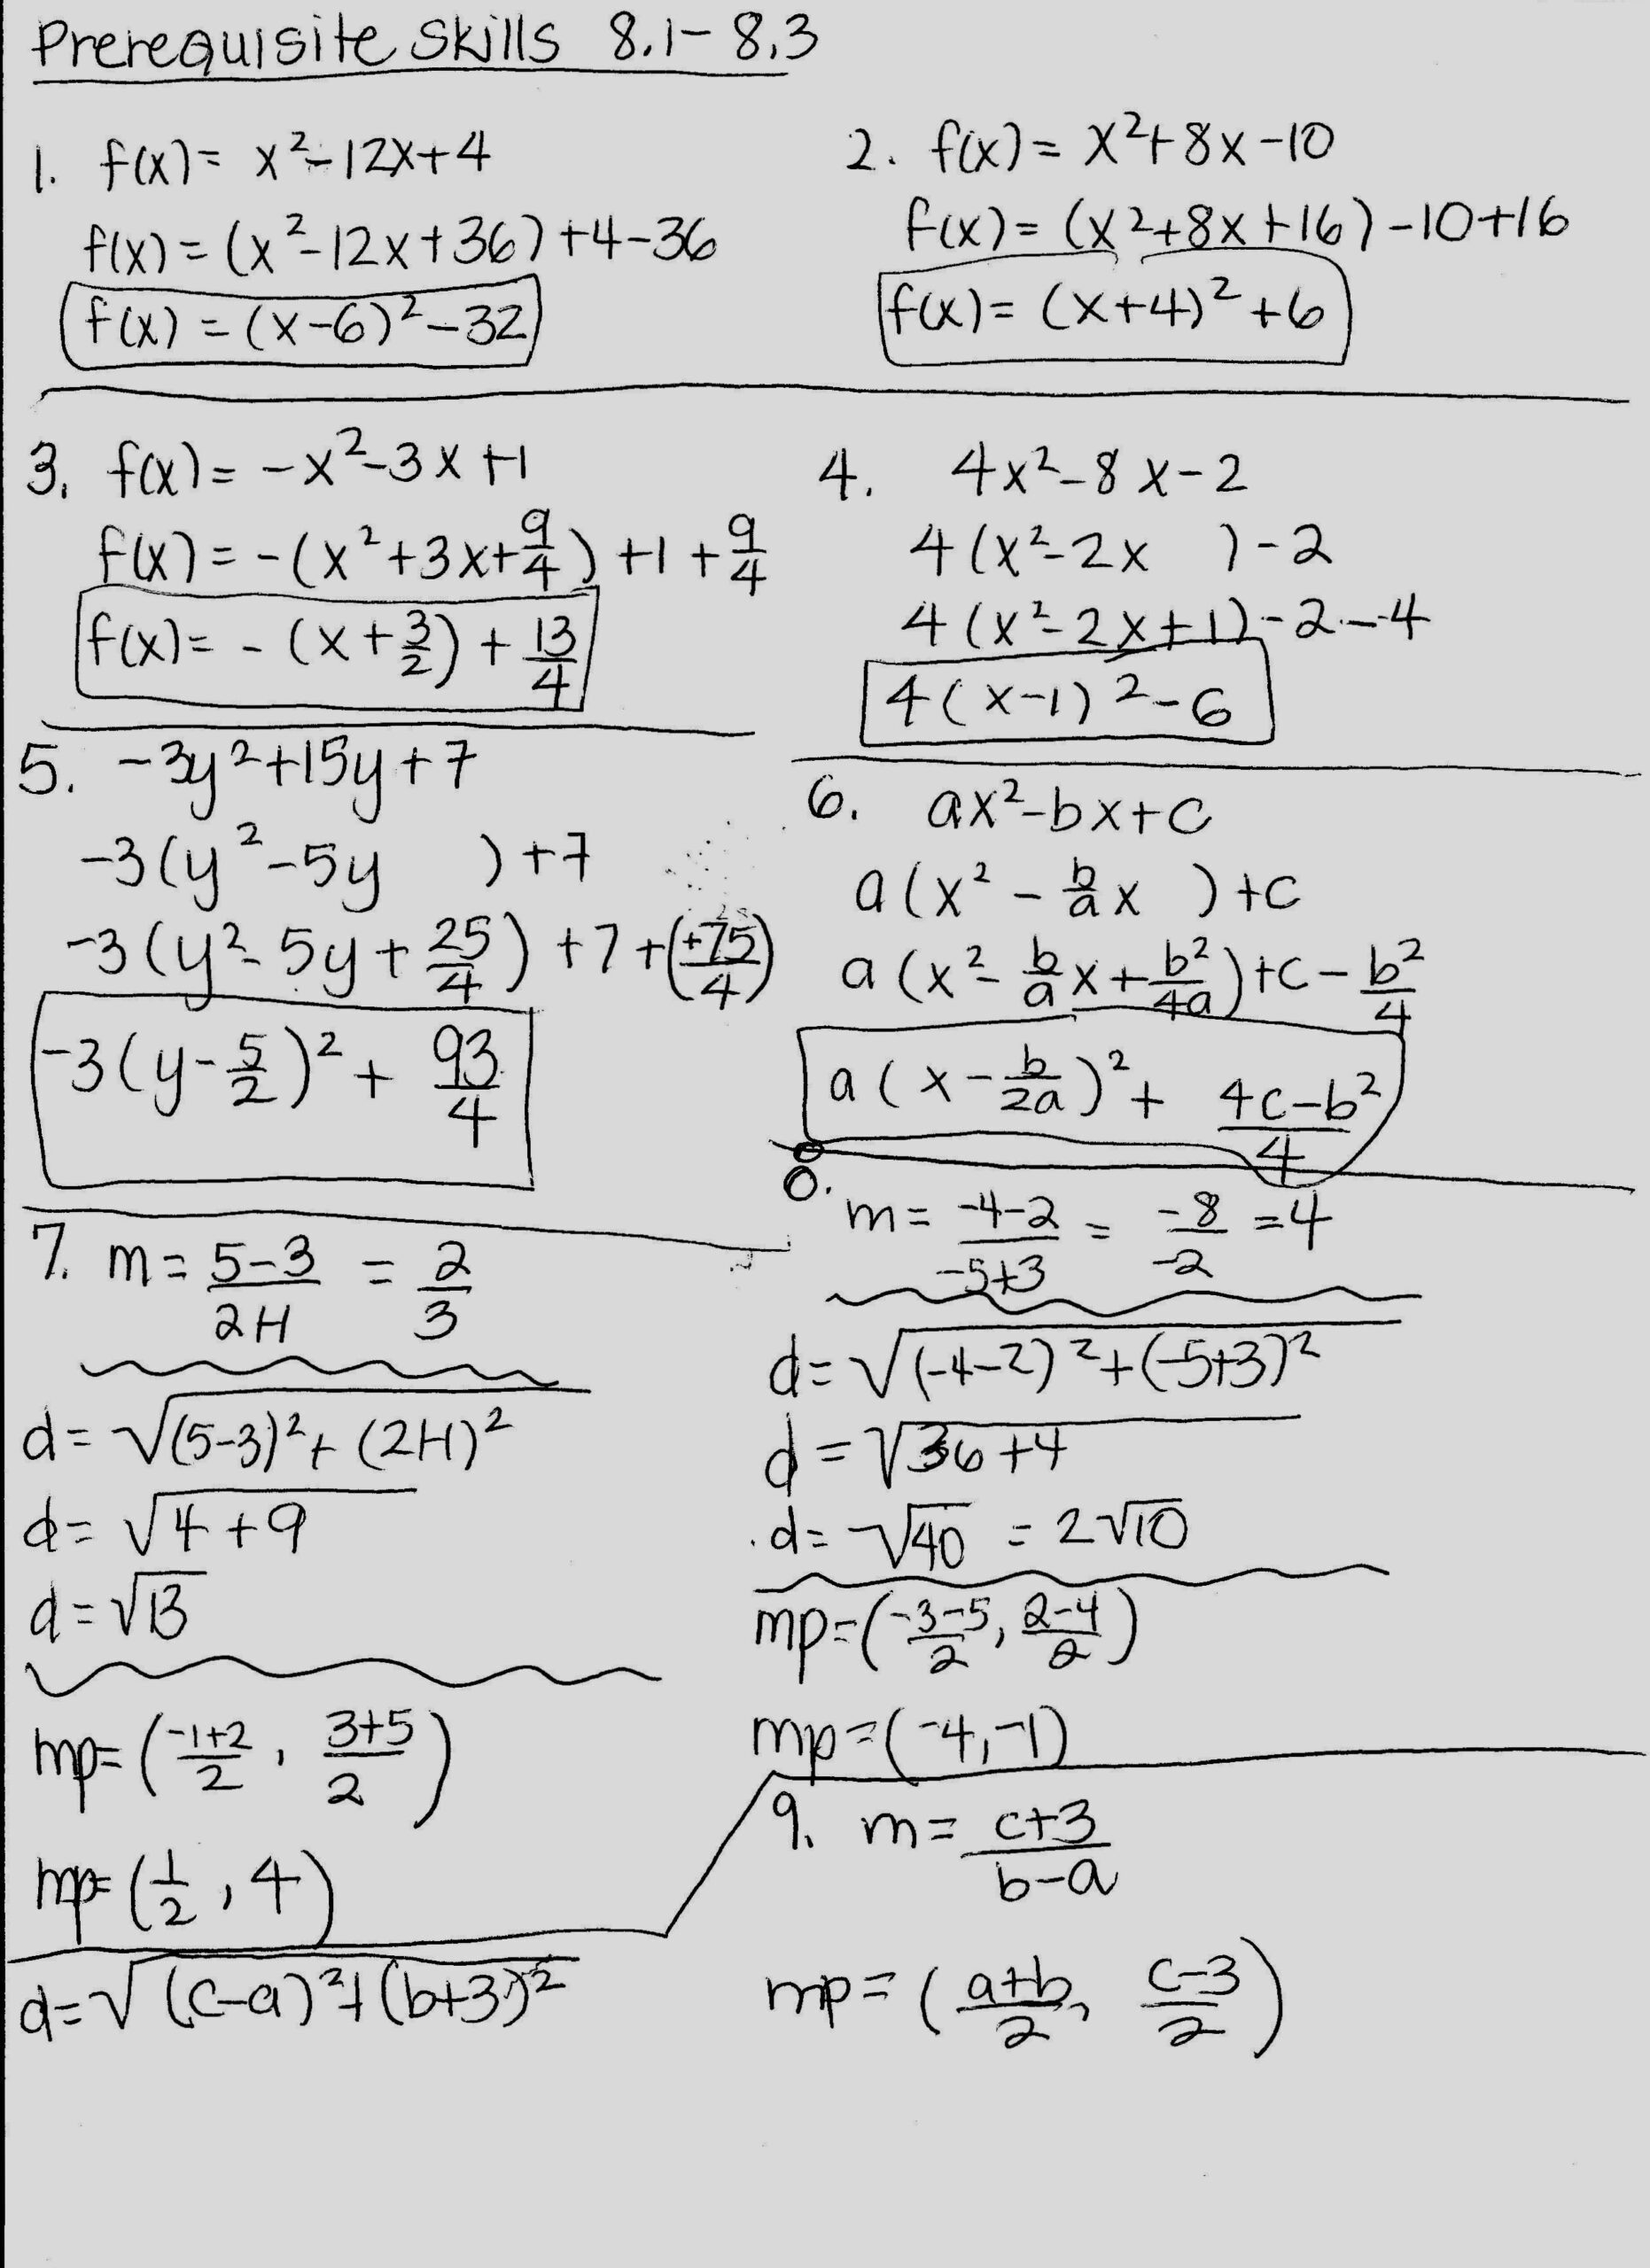 Prerequisite Skills 8.1-8.3
1. f(x) = x²-12x+4
f(x) = (x²-12x+36)+4-36
f(x) = (x-6)²-32
2. f(x) = x²+8x-10
f(x) = (x²+8x+16)-10+16
f(x) = (x+4)²+6
3. f(x) = -x²-3x+1
f(x) = -(x²+3x+9/4)+1+9/4
f(x) = -(x+3/2)+13/4
4. 4x²-8x-2
4(x²-2x )-2
4(x²-2x+1)-2-4
4(x-1)²-6
5. -3y²+15y+7
-3(y²-5y )+7
-3(y²-5y+25/4)+7+(+75/4)
-3(y-5/2)²+93/4
6. ax²-bx+c
a(x²-b/a x )+c
a(x²-b/a x+b²/4a)+c-b²/4
a(x-b/2a)²+(4c-b²)/4
7. m = (5-3)/(2+1) = 2/3
d = √(5-3)²+(2+1)²
d = √4+9
d = √13
mp = ((-1+2)/2, (3+5)/2)
mp = (1/2, 4)
8. m = (-4-2)/(-5+3) = -8/-2 = 4
d = √(-4-2)²+(-5+3)²
d = √36+4
d = √40 = 2√10
mp = ((-3-5)/2, (2-4)/2)
mp = (-4,-1)
9. m = (c+3)/(b-a)
d = √(c-a)²+(b+3)²
mp = ((a+b)/2, (c-3)/2)